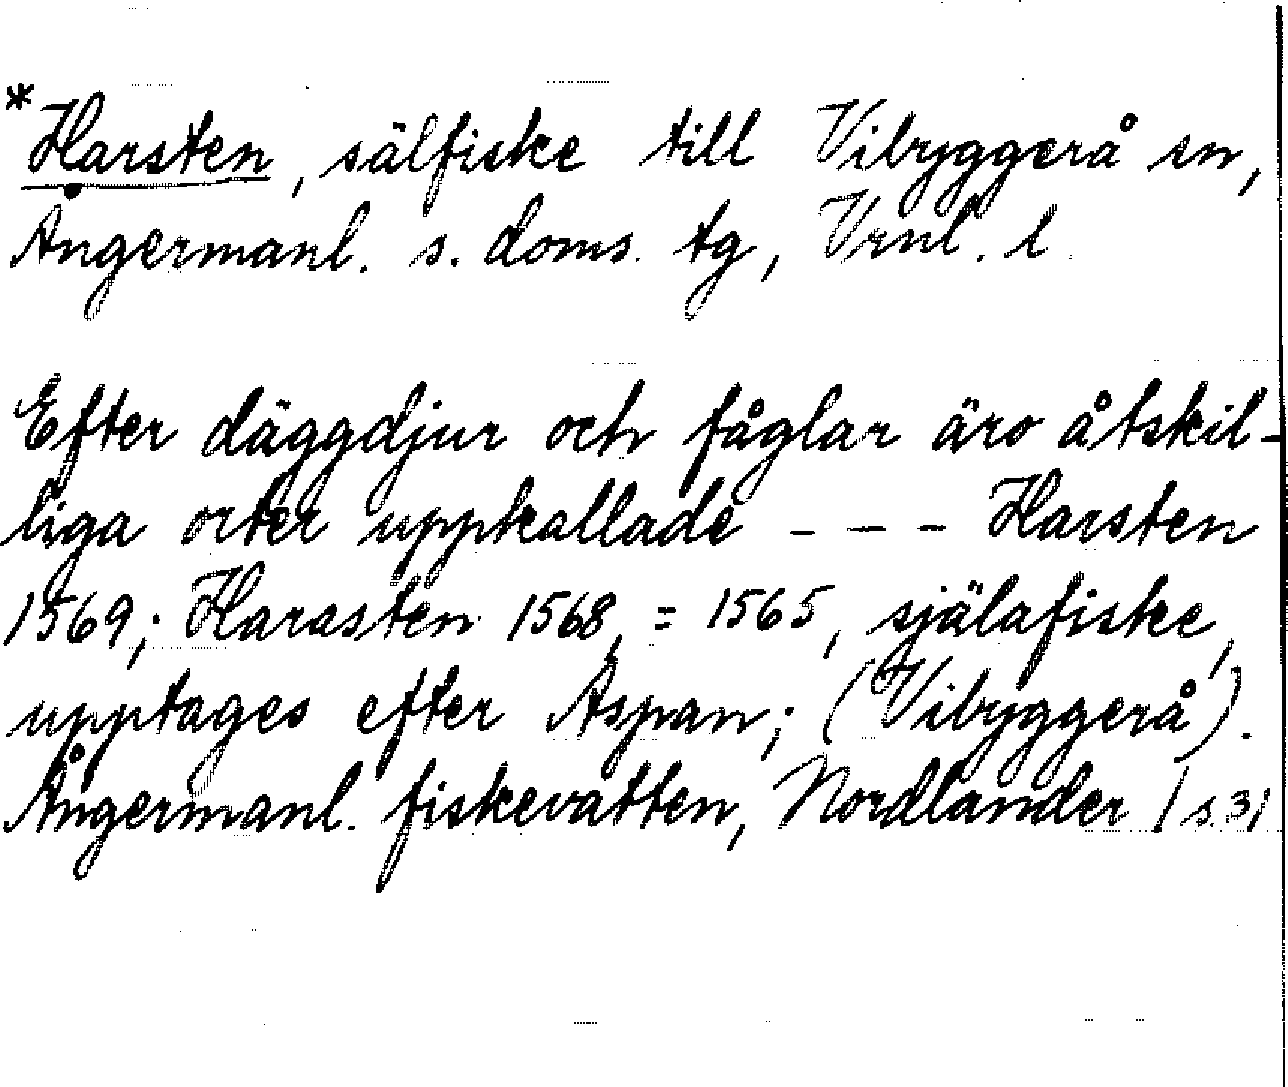 *Harsten, sälfiske till Vibyggerå sn,
Ångermanl. s. doms. tg, Vrnl. l.
Efter däggdjur och fåglar äro åtskil-
liga orter uppkallade - - - Harsten
1569; Harasten 1568, = 1565, själafiske,
upptages efter Aspan; (Vibyggerå).
Ångermanl. fiskevatten, Nordlander / s. 31